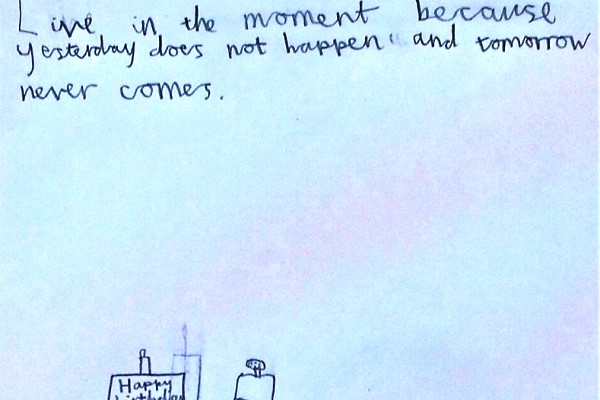 Live in the moment because
yesterday does not happen and tomorrow
never comes.
Happy
birthday